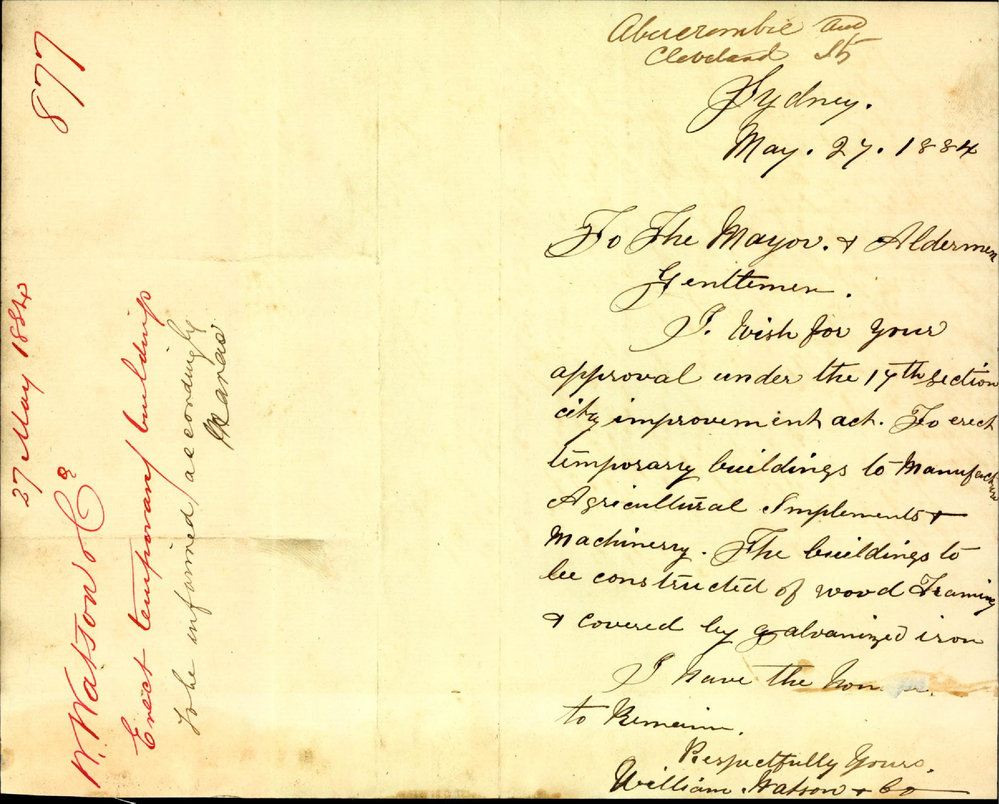 Abercrombie and
Cleveland St
Sydney.
May. 27. 1884
To The Mayor. & Aldermen
Gentlemen.
I. Wish for your
approval under the 17th section
city improvement act. To erect
temporary buildings to Manufacture
Agricultural Implements &
Machinery. The buildings to
be constructed of wood Framing
& covered by galvanized iron
I have the hon
to Remain.
Respectfully Yours.
William Watson & Co
877
27 May 1884
W. Watson & Co
Erect temporary buildings
To be informed accordingly